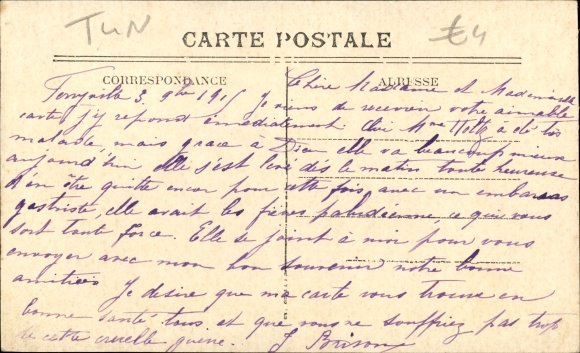 TUN
£4
CARTE POSTALE
CORRESPONDANCE
ADRESSE
Ferryville 3 9bre 1915 Chère Madame et Mademoiselle
Je viens de recevoir votre aimable
carte j'y répond immédiatement. Oui Mme a été très
malade, mais grace à Dieu elle va beaucoup mieux
aujourd'hui elle s'est levé dès le matin toute heureuse
d'en être quitte encor pour cette fois avec un embarras
gastriste, elle avait les fièvres paludéenne ce qui vous
sort toute force. Elle se joint à moi pour vous
envoyer avec mon bon souvenir notre bonne
amitiées Je desire que ma carte vous trouve en
bonne santé tous, et que vous ne souffriez pas trop
de cette cruelle guerre. J